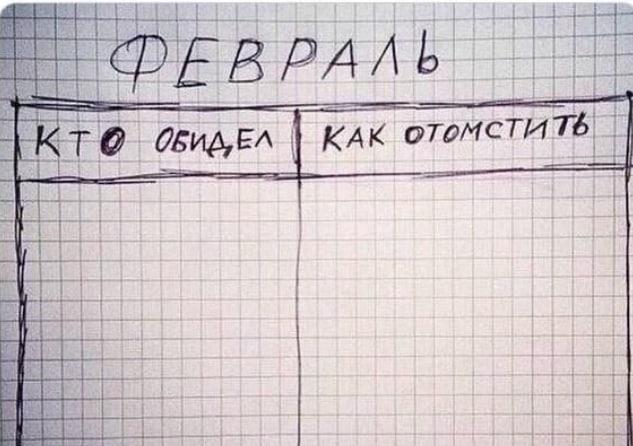 ФЕВРАЛЬ
КТО ОБИДЕЛ КАК ОТОМСТИТЬ